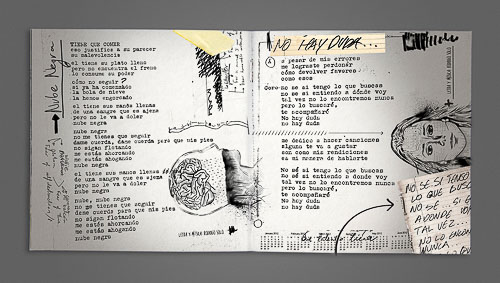 Nube Negra
TIENE QUE COMER
eso justifica a su parecer
su malevolencia
el tiene su plato lleno
pero no encuentra el freno
lo consume su poder
cómo no seguir?
si ya ha comenzado
la bola de nieve
la hemos engordado
el tiene sus manos llenas
de una sangre que es ajena
pero no le va a doler
nube negra
nube negra
no me tienes que seguir
dame cuerda, dame cuerda pero que mis pies
no sigan flotando
me estás ahorcando
me estás ahogando
nube negra
el tiene sus manos llenas
de una sangre que es ajena
pero no le va a doler
nube negra
nube, nube negra
no me tienes que seguir
dame cuerda pero que mis pies
no sigan flotando
me estás ahorcando
me estás ahogando
nube negra
LETRA Y MÚSICA: RODRIGO SOLO
NO HAY DUDA...
A
a pesar de mis errores
me lograste perdonar
cómo devolver favores
como esos
Coro
No sé si tengo lo que buscas
no se si entiendo a dónde voy
tal vez no lo encontremos nunca
pero lo buscaré,
te acompañaré
No hay duda
No hay duda
me dedico a hacer canciones
alguna te va a gustar
son como mis rendiciones
es mi manera de hablarte
No sé si tengo lo que buscas
no sé si entiendo a dónde voy
tal vez no lo encontremos nunca
pero lo buscaré,
te acompañaré
No hay duda
No hay duda
No hay duda
LETRA Y MÚSICA: RODRIGO SOLO
NO SE SI TENGO
LO QUE BUSC
NO SE... SI E
A DONDE
TAL VEZ...
NO LO ENCON
NUNCA...